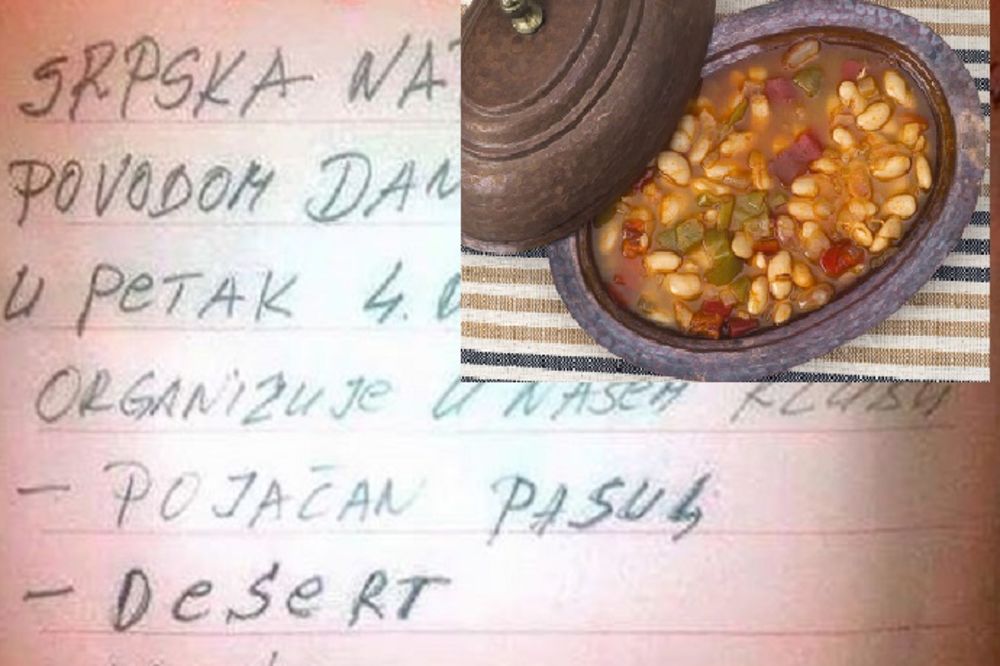 SRPSKA NA
POVODOM DAN
U PeTAK 4.
ORGANiZUJe U NAŠEM KLUBU
- POJAČAN PASULJ
- DeSeRT